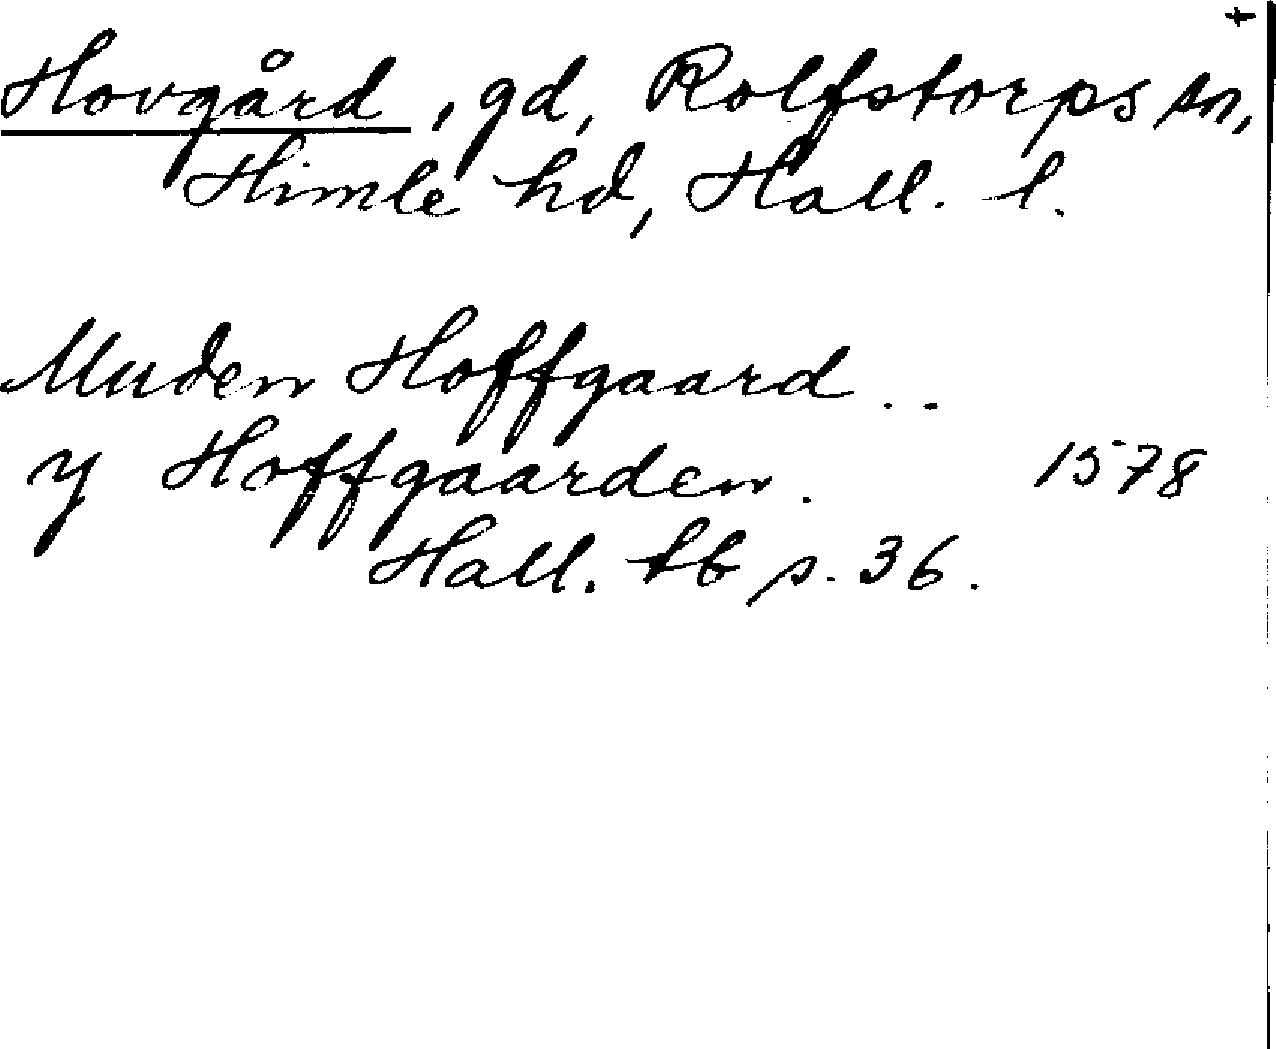 Hovgård, gd, Rolfstorps sn,
Himle hd, Hall. l.
Muden Hoffgaard . .
y Hoffgaarden. 1578
Hall. tb s. 36.